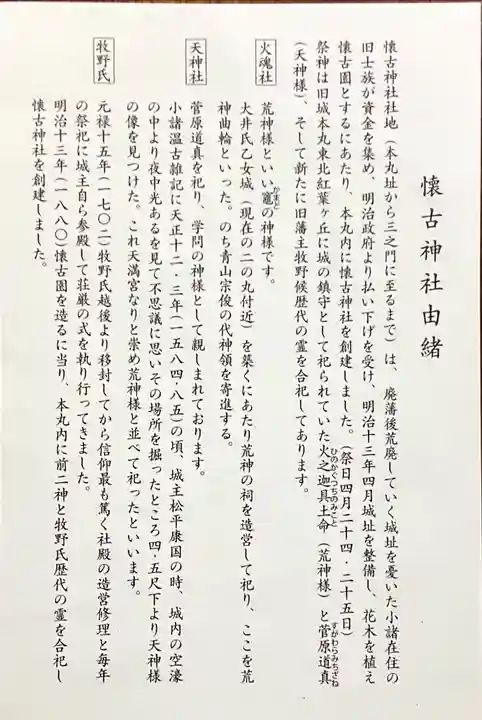 懐古神社由緒
懐古神社社地(本丸址から三之門に至るまで)は、廃藩後荒廃していく城址を憂いた小諸在住の
旧士族が資金を集め、明治政府より払い下げを受け、明治十三年四月城址を整備し、花木を植え
懐古園とするにあたり、本丸内に懐古神社を創建しました。(祭日四月二十四・二十五日)
祭神は旧城本丸東北紅葉ヶ丘に城の鎮守として祀られていた火之迦具土命(荒神様)と菅原道真
ひのかぐつちのみこと
すがわらみちざね
(天神様)、そして新たに旧藩主牧野候歴代の霊を合祀してあります。
火魂社
荒神様といい竈の神様です。
かまど
大井氏乙女城(現在の二の丸付近)を築くにあたり荒神の祠を造営して祀り、ここを荒
神曲輪といった。のち青山宗俊の代神領を寄進する。
天神社
菅原道真を祀り、学問の神様として親しまれております。
小諸温古雑記に天正十二・三年(一五八四・八五)の頃、城主松平康国の時、城内の空濠
の中より夜中光あるを見て不思議に思いその場所を掘ったところ四・五尺下より天神様
の像を見つけた。これ天満宮なりと崇め荒神様と並べて祀ったといいます。
牧野氏
元禄十五年(一七〇二)牧野氏越後より移封してから信仰最も篤く社殿の造営修理と毎年
の祭祀に城主自ら参殿して荘厳の式を執り行ってきました。
明治十三年(一八八〇)懐古園を造るに当り、本丸内に前二神と牧野氏歴代の霊を合祀し
懐古神社を創建しました。